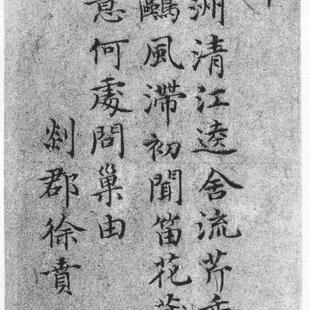 洲清江遶舍流芹
鷗風滯初聞笛花
意何處問巢由
剡郡徐賁